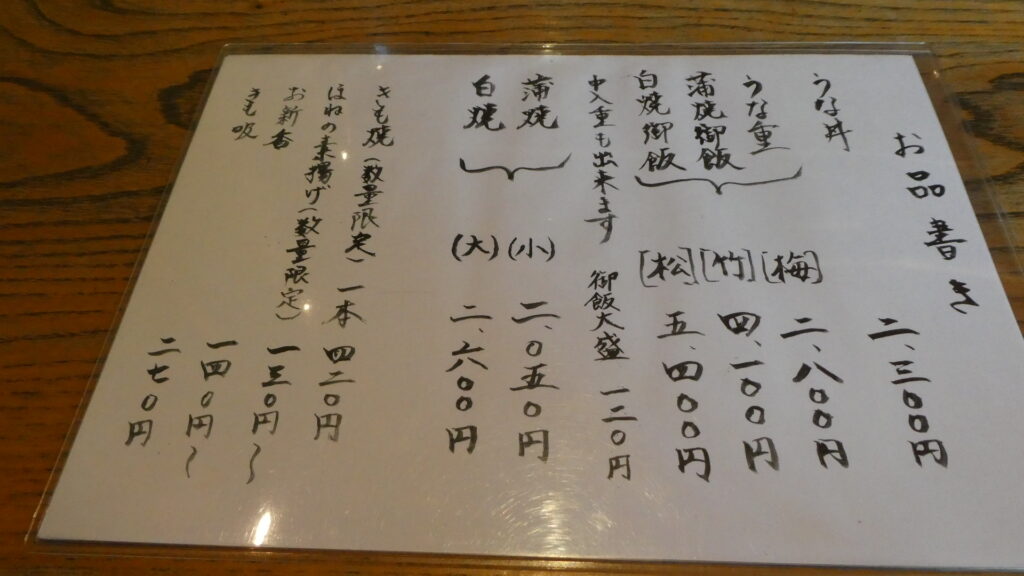 お品書き
うな丼 二、三〇〇円
うな重
蒲焼御飯
白焼御飯
[梅] 二、八〇〇円
[竹] 四、一〇〇円
[松] 五、四〇〇円
中入重も出来ます 御飯大盛 一二〇円
蒲焼
白焼
(小) 二、〇五〇円
(大) 二、六〇〇円
きも焼(数量限定)一本 四二〇円
ほねの素揚げ(数量限定) 一三〇円〜
お新香 一四〇円〜
きも吸 二七〇円